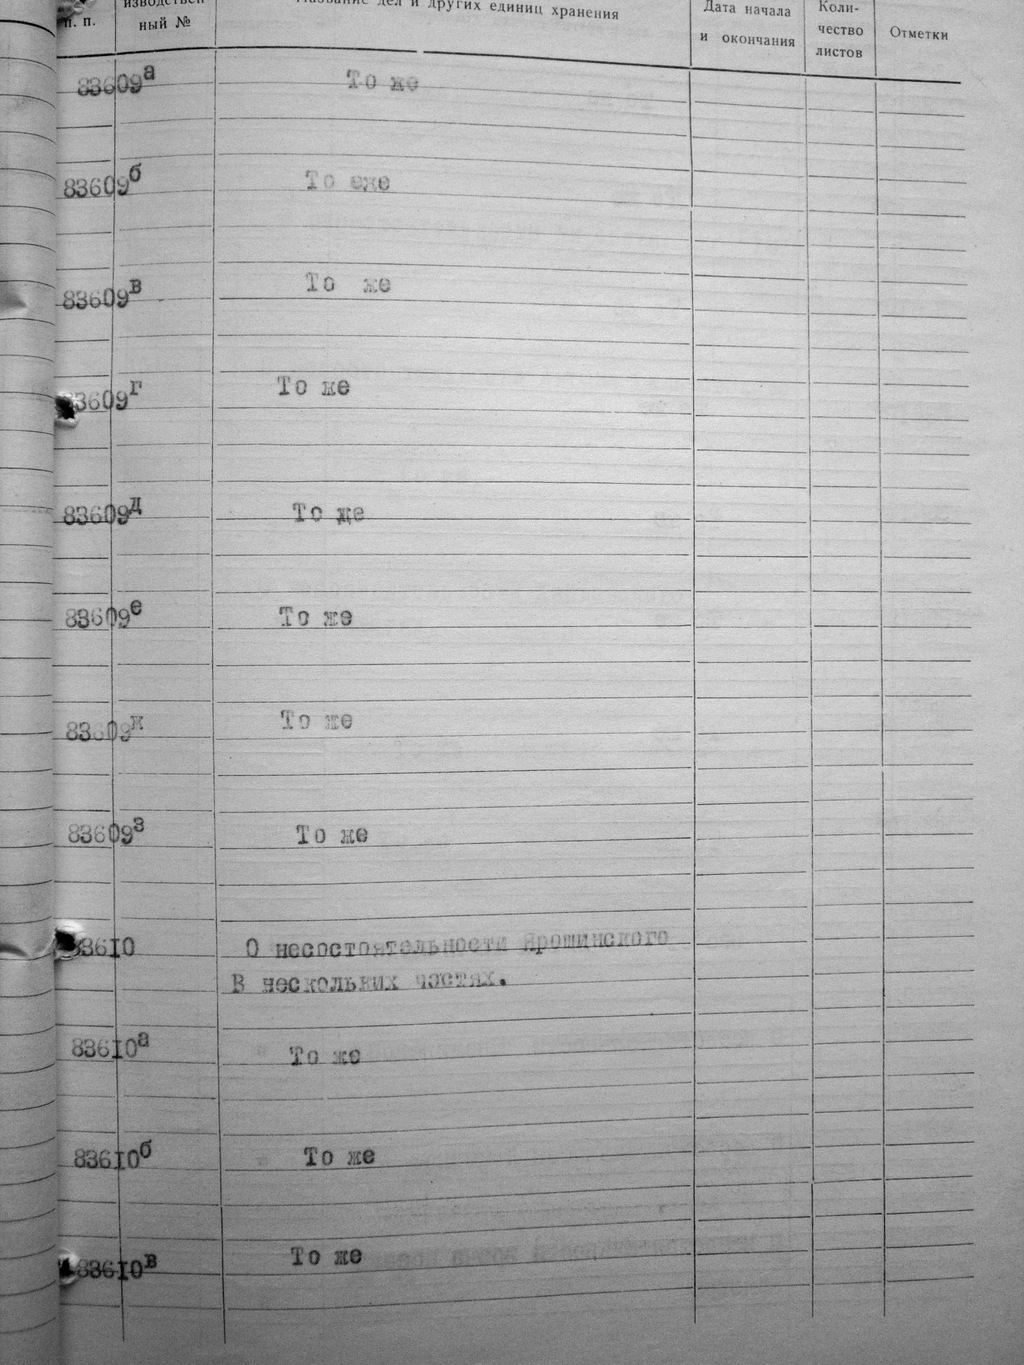 п. п. изводствен- ный № Название дел и других единиц хранения Дата начала и окончания Коли- чество листов Отметки
83609а То же
83609б То еже
83609в То же
83609г То же
83609д То же
83609е То же
83609ж То же
83609з То же
83610 О несостоятельности Ярошинского
В нескольких частях.
83610а То же
83610б То же
83610в То же